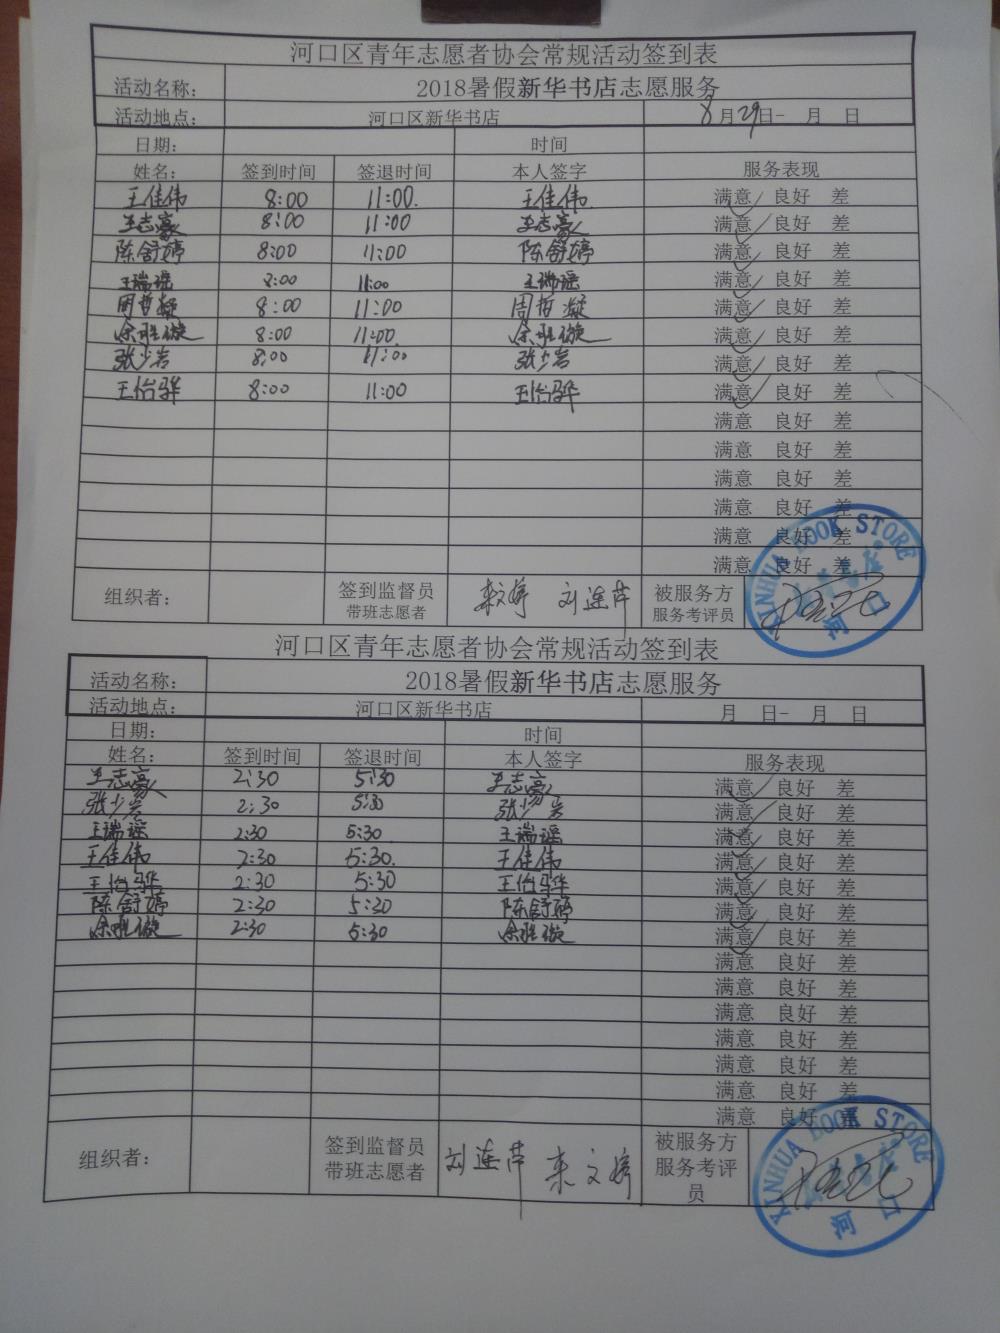 河口区青年志愿者协会常规活动签到表
活动名称： 2018暑假新华书店志愿服务
活动地点： 河口区新华书店 8月29日- 月 日
日期： 时间
姓名： 签到时间 签退时间 本人签字 服务表现
王佳伟 8:00 11:00. 王佳伟 满意 良好 差
王志豪 8:00 11:00 王志豪 满意 良好 差
陈舒婷 8:00 11:00 陈舒婷 满意 良好 差
王瑞瑶 8:00 11:00 王瑞瑶 满意 良好 差
周哲凝 8:00 11:00 周哲凝 满意 良好 差
8:00 11:00. 满意 良好 差
张少岩 8:00 11:00 张少岩 满意 良好 差
王怡骅 8:00 11:00 王怡骅 满意 良好 差
满意 良好 差
满意 良好 差
满意 良好 差
满意 良好 差
满意 良好 差
满意 良好 差
组织者： 签到监督员 被服务方
带班志愿者 刘莲萍 服务考评员
XINHUA BOOK STORE
河口
河口区青年志愿者协会常规活动签到表
活动名称： 2018暑假新华书店志愿服务
活动地点： 河口区新华书店 月 日- 月 日
日期： 时间
姓名： 签到时间 签退时间 本人签字 服务表现
王志豪 2:30 5:30 王志豪 满意 良好 差
张少岩 2:30 5:30 张少岩 满意 良好 差
王瑞瑶 2:30 5:30 王瑞瑶 满意 良好 差
王佳伟 2:30 5:30. 王佳伟 满意 良好 差
王怡骅 2:30 5:30 王怡骅 满意 良好 差
陈舒婷 2:30 5:30 陈舒婷 满意 良好 差
2:30 5:30 满意 良好 差
满意 良好 差
满意 良好 差
满意 良好 差
满意 良好 差
满意 良好 差
满意 良好 差
满意 良好 差
组织者： 签到监督员 刘莲萍 被服务方
带班志愿者 服务考评
员
XINHUA BOOK STORE
河口